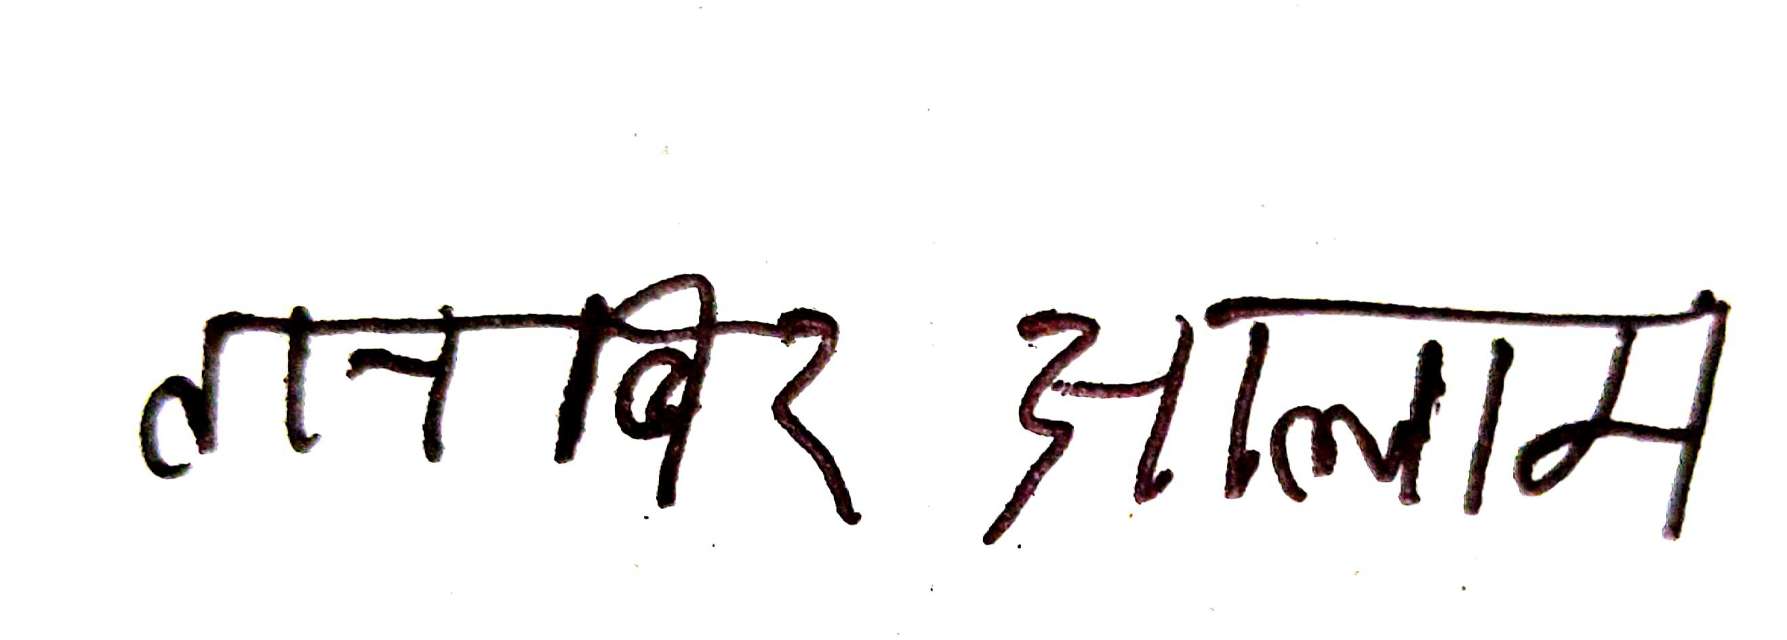 तानबिर आलाम